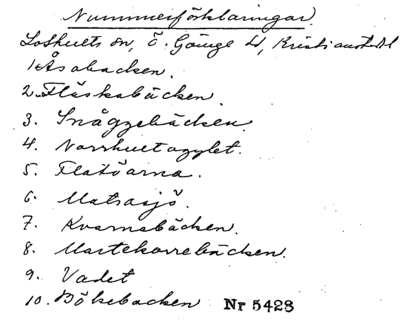 Nummerförklaringar.
Loshults sn, Ö. Göinge hd, Kristianst. l
1. Åsabacken.
2. Fläskabäcken.
3. Snågzebäcken.
4. Norrhultagylet.
5. Flatöarna.
6. Matrasjö.
7. Kvarnabäcken.
8. Martekorrebäcken.
9. Vadet
10. Bökebacken Nr 5423